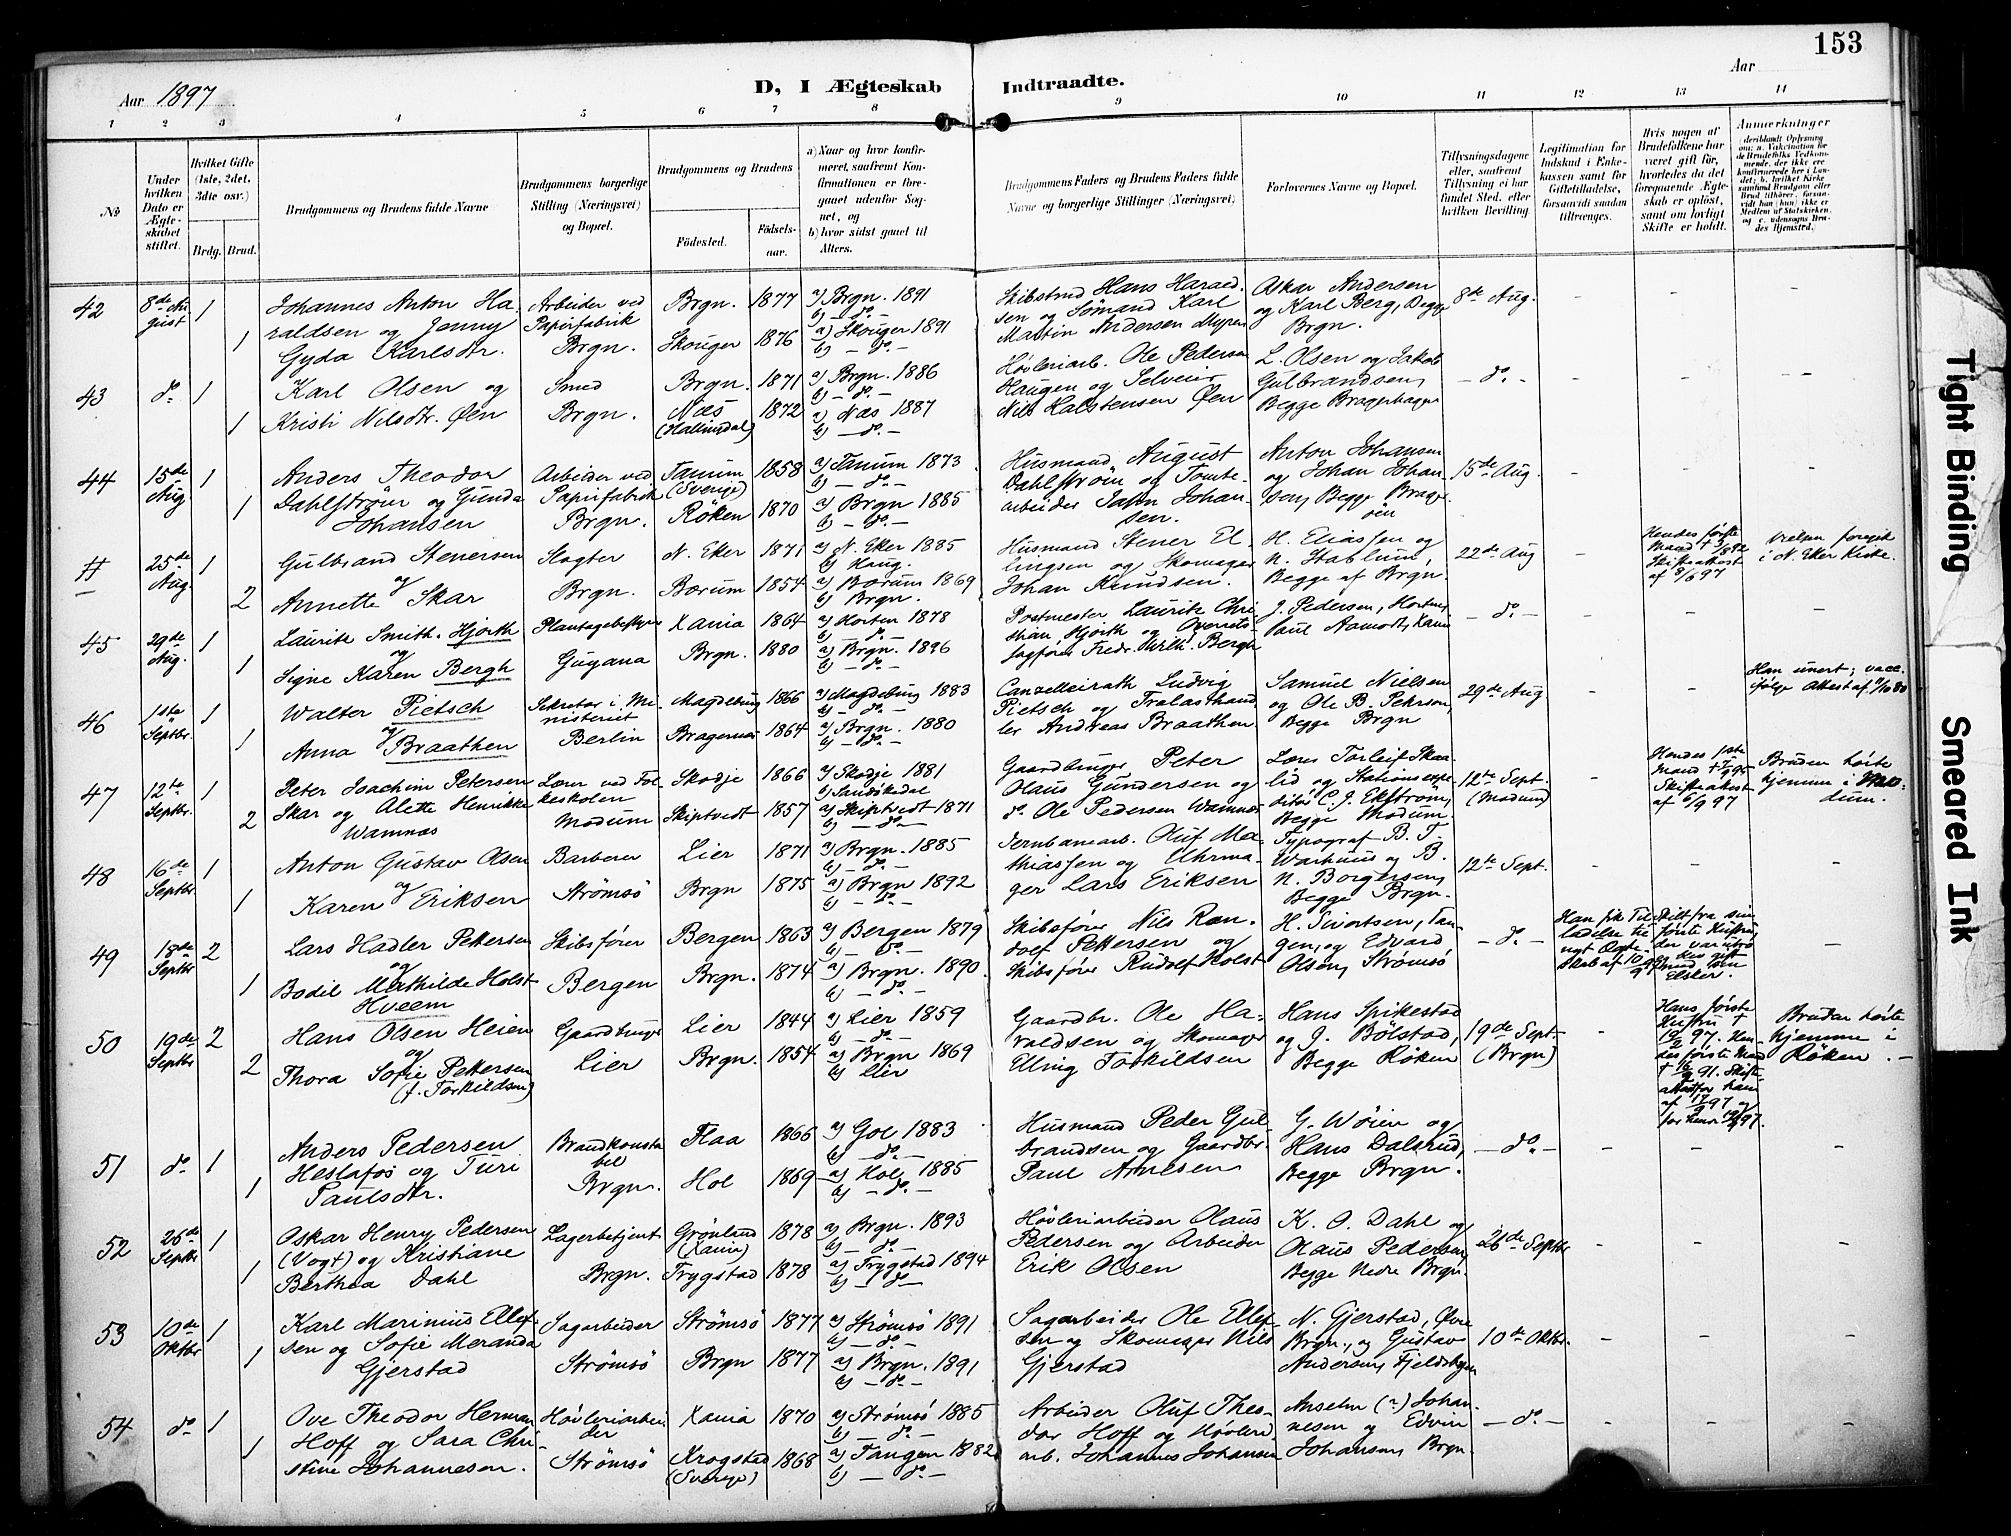 153
Aar 1897
D, I Ægteskab Indtraadte.
Aar
1 2 3 4 5 6 7 8 9 10 11 12 13 14
No
Under hvilken Dato er Ægteskabet stiftet.
Hvilket Gifte (1ste, 2det, 3die osv.)
Brdg. Brud.
Brudgommens og Brudens fulde Navne
Brudgommens borgerlige Stilling (Næringsvei) og Bopæl.
Brudgommens og Brudens
Födested. Födselsaar.
a) Naar og hvor konfirmeret, saafremt Konfirmationen er foregaaet udenfor Sognet, og
b) hvor sidst gaaet til Alters.
Brudgommens Faders og Brudens Faders fulde Navne og borgerlige Stillinger (Næringsvei)
Forlovernes Navne og Bopæl.
Tillysningsdagene eller, saafremt Tillysning ei har fundet Sted, efter hvilken Bevilling.
Legitimation for Indskud i Enkekassen samt for Giftetilladelse, forsaavidt saadan tiltrænges.
Hvis nogen af Brudefolkene har været gift før, hvorledes da det foregaaende Ægteskab er opløst, samt om lovligt Skifte er holdt.
Anmærkninger
42 8de August 1 1
Johannes Anton Haraldsen og Jenny Gyda Karlsdtr.
Arbeider ved Papirfabrik Brgn.
Brgn. 1877 a) Brgn. 1891 b) – do. –
Skouger 1876 a) Skouger 1891 b) – do. –
Hans Haraldsen og Sömand Karl Martin Andersen Myren
Oskar Andersen og Karl Berg, Begge Brgn.
8de Aug. – – –
43 do. 1 1
Karl Olsen og Kristi Nilsdtr. Øen
Smed Brgn.
Brgn. 1871 a) Brgn. 1886 b) – do. –
Næs (Hallingdal) 1872 a) Næs 1887 b) – do. –
Høvleriarb. Ole Pedersen Haugen og Selveier Nils Halstensen Øen
L. Olsen og Jakob Gulbrandsen, Begge
– do. – – – –
44 15de Aug. 1 1
Anders Theodor Dahlström og Gunda Johansen
Arbeider ved Papirfabrik Brgn.
Tanum (Sverige) 1858 a) Tanum 1873 b) – do. –
Röken 1870 a) Brgn 1885 b) – do. –
Husmand August Dahlström og Tomtearbeider Johan Johansen.
Anton Johansen og Johan Johansen, Begge
15de Aug. – – –
25de Aug. 1 2
Gulbrand Stenersen og Annette Skar
Slagter Brgn.
N. Eker 1871 a) N. Eker 1885 b) Haug.
Borum 1854 a) Borum 1869 b) Brgn.
Husmand Stener Ellingsen og Skomager Johan Knudsen.
H. Eliassen og N. Stablum, Begge af Brgn.
22de Aug –
Hendes første Mand † Skifteattest af 8/6 97
Vielsen foregik i N. Eker Kirke.
45 29de Aug. 1 1
Laurits Smith-Hjorth og Signe Karen Bergh
Guyana
Xania 1864 a) Horten 1878 b) – do. –
Brgn. 1880 a) Brgn. 1896 b) – do. –
Postmester Laurits Christian Hjorth og Overretssagfører Fredr. Wilh. Bergh
J. Pedersen, Horten, Paul Aamodt, Xania
– do. – – – –
46 1ste Septbr. 1 1
Walter Pietsch og Anna Braathen
Sekretær i Ministeriet Berlin
Magdeburg 1866 a) Magdeburg 1883 b) – do. –
Bragernæs 1864 a) Brgn. 1880 b) – do. –
Canzelleirath Ludvig Pietsch og Trælasthandler Andreas Braathen
Samuel Nielsen og Ole B. Pehrson, Begge Brgn
29de Aug – –
Han unert; vacc. ifølge Attest af
47 12te Septbr. 1 2
Peter Joachim Petersen Skar og Alette Henrikke Wamnæs
Lærer ved Folkeskolen Modum
Skodje 1866 a) Skodje 1881 b)
Skiptvedt 1857 a) Skiptvedt 1871 b) – do. –
Gaardbruger Peter Olaus Gundersen og do. Ole Pedersen Wamnæs
Lærer Torleif Skaalid og Stationsexpeditør C. J. Ekström, Begge Modum.
12te Sept. (Modum) –
Hendes 1ste Mand † Skifteattest af 6/9 97
Bruden hörte hjemme i Modum.
48 16de Septbr. 1 1
Anton Gustav Olsen og Karen Eriksen
Barberer Strömsö
Lier 1871 a) Brgn. 1885 b) – do. –
Brgn 1875 a) Brgn 1892 b) – do. –
Jernbanearb. Oluf Mathiassen og Uhrmager Lars Eriksen
Typograf B. T. Warhuus og B. N. Borgersen, Begge Brgn.
12te Sept. – – –
49 18de Septbr 2 1
Lars Hadler Pettersen og Bodil Mathilde Holst Hveem
Skibsfører Bergen
Bergen 1863 a) Bergen 1879 b) – do. –
Brgn. 1874 a) Brgn. 1890. b) – do. –
Skibsfører Nils Randolf Pettersen og Skibsfører Rudolf Holst
H. Sivertsen, Tangen, og Edvard Olsen, Strömsö
– do. –
Han fik Tilladelse til nyt Ægteskab af
Skilt fra sin første Hustru, der var utro
–
50 19de Septbr 2 2
Hans Olsen Heien og Thora Sofie Pettersen (f. Torkildsen)
Gaardbruger Lier
Lier 1844 a) Lier 1859
Brgn. 1854 a) Brgn 1869 b) Lier
Gaardbr. Ole Haraldsen og Skomager Elling Torkildsen
Hans Spikestad og J. Bölstad, Begge Röken
19de Sept. (Brgn) –
Hans første Hustru † Hendes første Mand † Skifteattest for ham af og for hende
Bruden hörte hjemme i Röken. –
51 do. 1 1
Anders Pedersen Heslafos og Turi Paulsdtr.
Brandkonstabel Brgn.
Flaa 1866 a) Gol 1883 b) – do. –
Hol 1869 a) Hol 1885 b) – do. –
Husmand Peder Gulbrandsen og Gaardbr. Paul Arnesen
G. Wöien og Hans Dalsrud, Begge Brgn.
– do. – – – –
52 26de Septbr 1 1
Oskar Henry Pedersen (Vogt) og Kristiane Berthea Dahl
Lagerbetjent Brgn.
Grönland (Xania) 1878 a) Brgn. 1893 b) – do. –
Trygstad 1878 a) Trygstad 1894 b) – do. –
Høvleriarbeider Olaus Pedersen og Arbeider Erik Olsen
K. O. Dahl og Olaus Pedersen, Begge Nedre Brgn.
26de Septbr – – –
53 10de Oktbr 1 1
Karl Marinius Ellefsen og Sofie Meranda Gjerstad
Sagarbeider Strömsö
Strömsö 1877 a) Strömsö 1891 b) – do. –
Brgn 1877 a) Brgn. 1891 b) – do. –
Sagarbeider Ole Ellefsen og Skomager Nils Gjerstad
N. Gjerstad, Øvre Brgn., og Gustav Andersen, Fjeldsbyen
10de Oktbr. – – –
54 do. 1 1
Ove Theodor Herman Hoff og Sara Christine Johannesen.
Høvleriarbeider Strömsö
Xania 1870 a) Strömsö 1885 b) – do. –
Krogstad (Sverige) 1868 a) Tangen 1882 b) – do. –
Arbeider Oluf Theodor Hoff og Høvleriarb. Johannes Johansen
Anselm (?) Johannesen og Edvin Johansen, Brgn.
– do. – – – –
Tight Binding
Smeared Ink